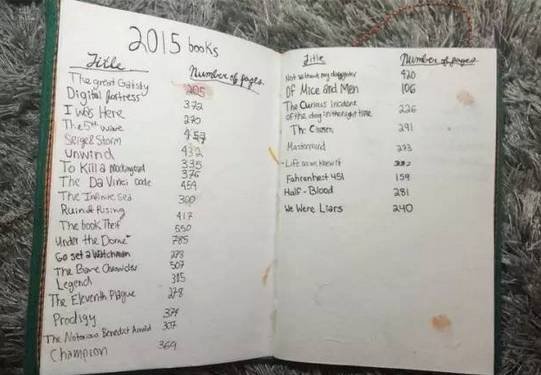 2015 books
Title Number of pages
The great Gatsby 205
Digital fortress 372
I was Here 270
The 5th wave 457
Seige & Storm 432
Unwind 335
To Kill a Mockingbird 376
The Da Vinci Code 454
The Infinite Sea 300
Ruin & Rising 417
The book Thief 550
Under the Dome 785
Go set a Watchman 278
The Bane Chronicles 507
Legend 315
The Eleventh Plague 278
Prodigy 374
The Notorious Benedict Arnold 307
Champion 369
Title Number of pages
Not without my daughter 420
Of Mice and Men 106
The Curious Incident
of the dog in the night time 226
The Chosen 291
Mastermind 293
Life as we knew it
Fahrenheit 451 159
Half-Blood 281
We Were Liars 240